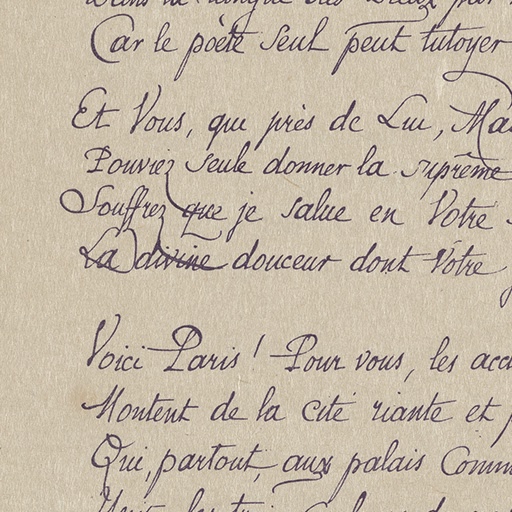 dans la langue des Dieux par
Car le poète seul peut tutoyer
Et Vous, qui près de Lui, Ma
Pouviez seule donner la suprême
Souffrez que je salue en Votre
La divine douceur dont Votre
Voici Paris ! Pour vous, les acc
Montent de la cité riante et
Qui, partout, aux palais Comm